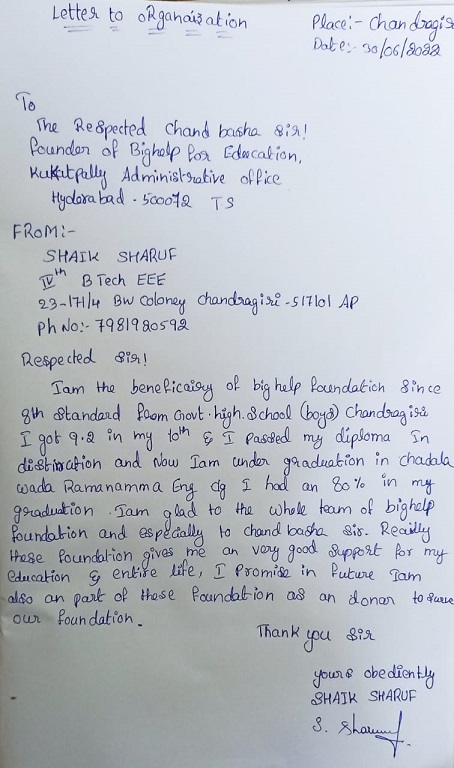 Letter to oRganaization
Place:- Chandragi
Date:- 30/06/2022
To
The Respected Chand basha Sir!
founder of Bighelp for Education,
Kukatpally Administrative office
Hyderabad - 500072 TS
FROM:-
SHAIK SHARUF
IVth B Tech EEE
23-171/4 BW Coloney Chandragiri - 517101 AP
Ph No:- 7981980592
Respected Sir!
Iam the beneficairy of big help foundation Since
8th Standard from Govt. high. School (boys) Chandragiri
I got 9.2 in my 10th & I Passed my diploma In
distination and Now Iam under graduation in chadala
wada Ramanamma Eng clg I had an 80% in my
graduation. Iam glad to the whole team of bighelp
foundation and especially to chand basha Sir. Reailly
these foundation gives me an very good Support for my
education & entire life, I Promise in future Iam
also an part of these foundation as an donar to
our foundation.
Thank you Sir
yours obediently
SHAIK SHARUF
S. Sharuf